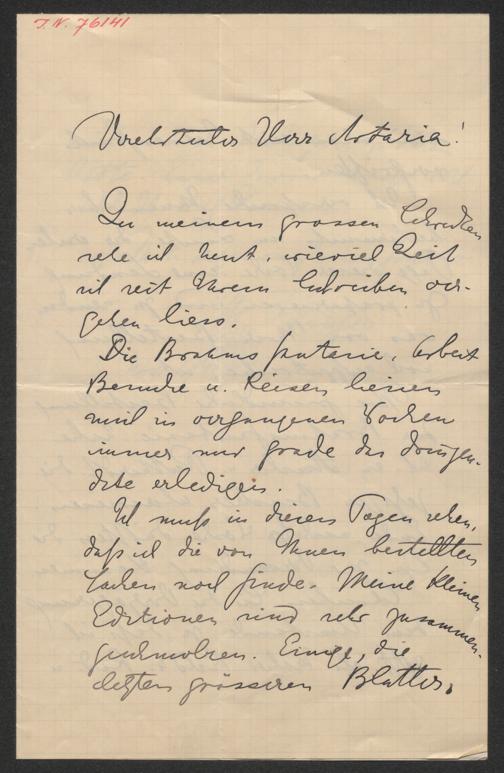 I.N. 76141
Verehrtester Herr Artaria!
Zu meinem grossen Schrecken
sehe ich heut, wieviel Zeit
ich seit Ihrem Schreiben ver-
gehen liess.
Die Brahmsfantasie, Arbeit
Besuche u. Reisen liessen
mich in vergangenen Wochen
immer nur grade das dringen-
dste erledigen.
Ich muß in diesen Tagen sehen,
daß ich die von Ihnen bestellten
Sachen noch finde. Meine kleinen
Editionen sind sehr zusammen-
geschmolzen. Einige, die
letzten grösseren Blätter,